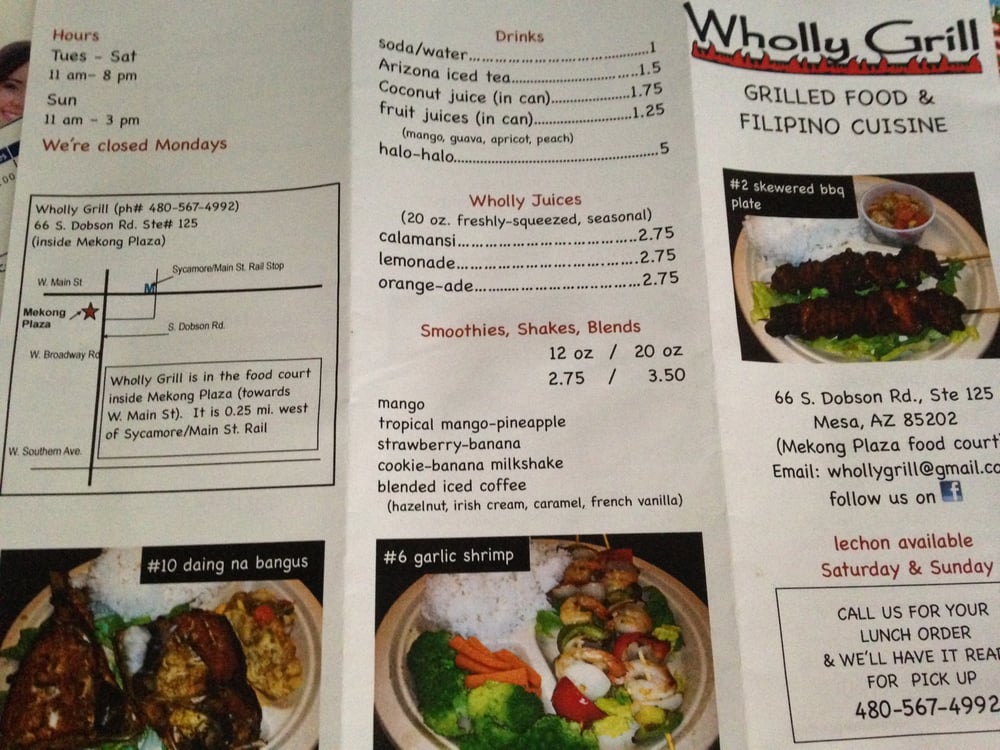 Hours
Tues - Sat
11 am- 8 pm
Sun
11 am - 3 pm
We're closed Mondays
Wholly Grill (ph# 480-567-4992)
66 S. Dobson Rd. Ste# 125
(inside Mekong Plaza)
Sycamore/Main St. Rail Stop
W. Main St
M
Mekong
Plaza
S. Dobson Rd.
W. Broadway Rd
Wholly Grill is in the food court
inside Mekong Plaza (towards
W. Main St). It is 0.25 mi. west
of Sycamore/Main St. Rail
W. Southern Ave.
#10 daing na bangus
Drinks
soda/water...............................1
Arizona iced tea......................1.5
Coconut juice (in can)..............1.75
fruit juices (in can).................1.25
(mango, guava, apricot, peach)
halo-halo....................................5
Wholly Juices
(20 oz. freshly-squeezed, seasonal)
calamansi...............................2.75
lemonade................................2.75
orange-ade.............................2.75
Smoothies, Shakes, Blends
12 oz / 20 oz
2.75 / 3.50
mango
tropical mango-pineapple
strawberry-banana
cookie-banana milkshake
blended iced coffee
(hazelnut, irish cream, caramel, french vanilla)
#6 garlic shrimp
Wholly Grill
GRILLED FOOD &
FILIPINO CUISINE
#2 skewered bbq
plate
66 S. Dobson Rd., Ste 125
Mesa, AZ 85202
(Mekong Plaza food court)
Email: whollygrill@gmail.co
follow us on f
lechon available
Saturday & Sunday
CALL US FOR YOUR
LUNCH ORDER
& WE'LL HAVE IT READ
FOR PICK UP
480-567-4992